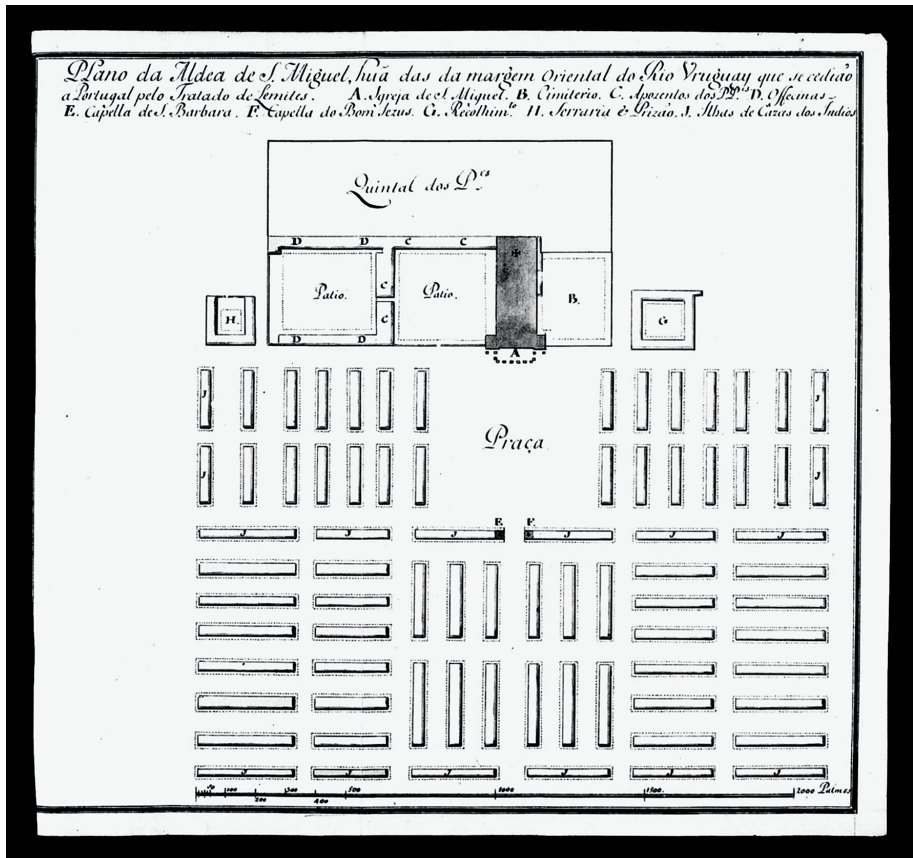 Plano da Aldea de S. Miguel, huã das da margem Oriental do Rio Vruguay que se cedião
a Portugal pelo Tratado de Lemites. A. Igreja de S. Miguel. B. Cimiterio. C. Apozentos dos P.P.es D. Offecinas
E. Capella de S. Barbara. F. Capella do Bom Jezus. G. Recolhim.to H. Ferraria & Prizão. J. Ilhas de Cazas dos Indios
Quintal dos P.es
D D C C
Patio. C Patio. B.
H. C G
D D
A
J J
Praça
J J
E. F.
J J J J J J
J J J J J J
50 100 300 500 1000 1500 2000 Palmos
200 400